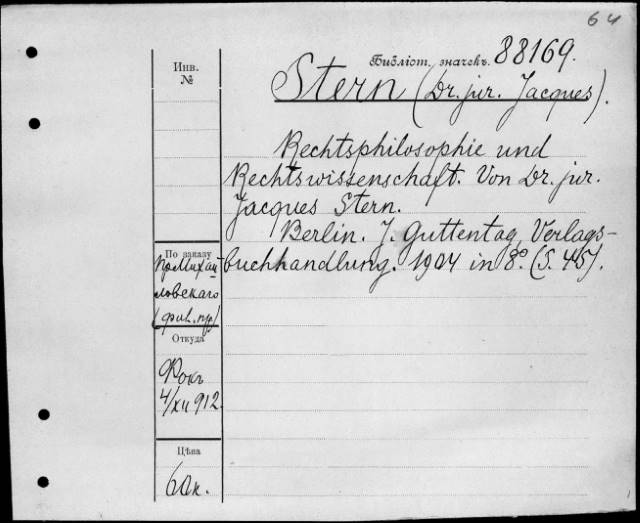 64
Библіот. значекъ. 88169.
Инв.
№
Stern (Dr. jur. Jacques).
Rechtsphilosophie und
Rechtswissenschaft. Von Dr. jur.
Jacques Stern.
Berlin. J. Guttentag, Verlags-
buchhandlung. 1904 in 8°. (S. 48).
По заказу
пр. Михай
ловскаго
(фил. пр)
Откуда
Фокъ
4/XII 912.
Цѣна
60к.